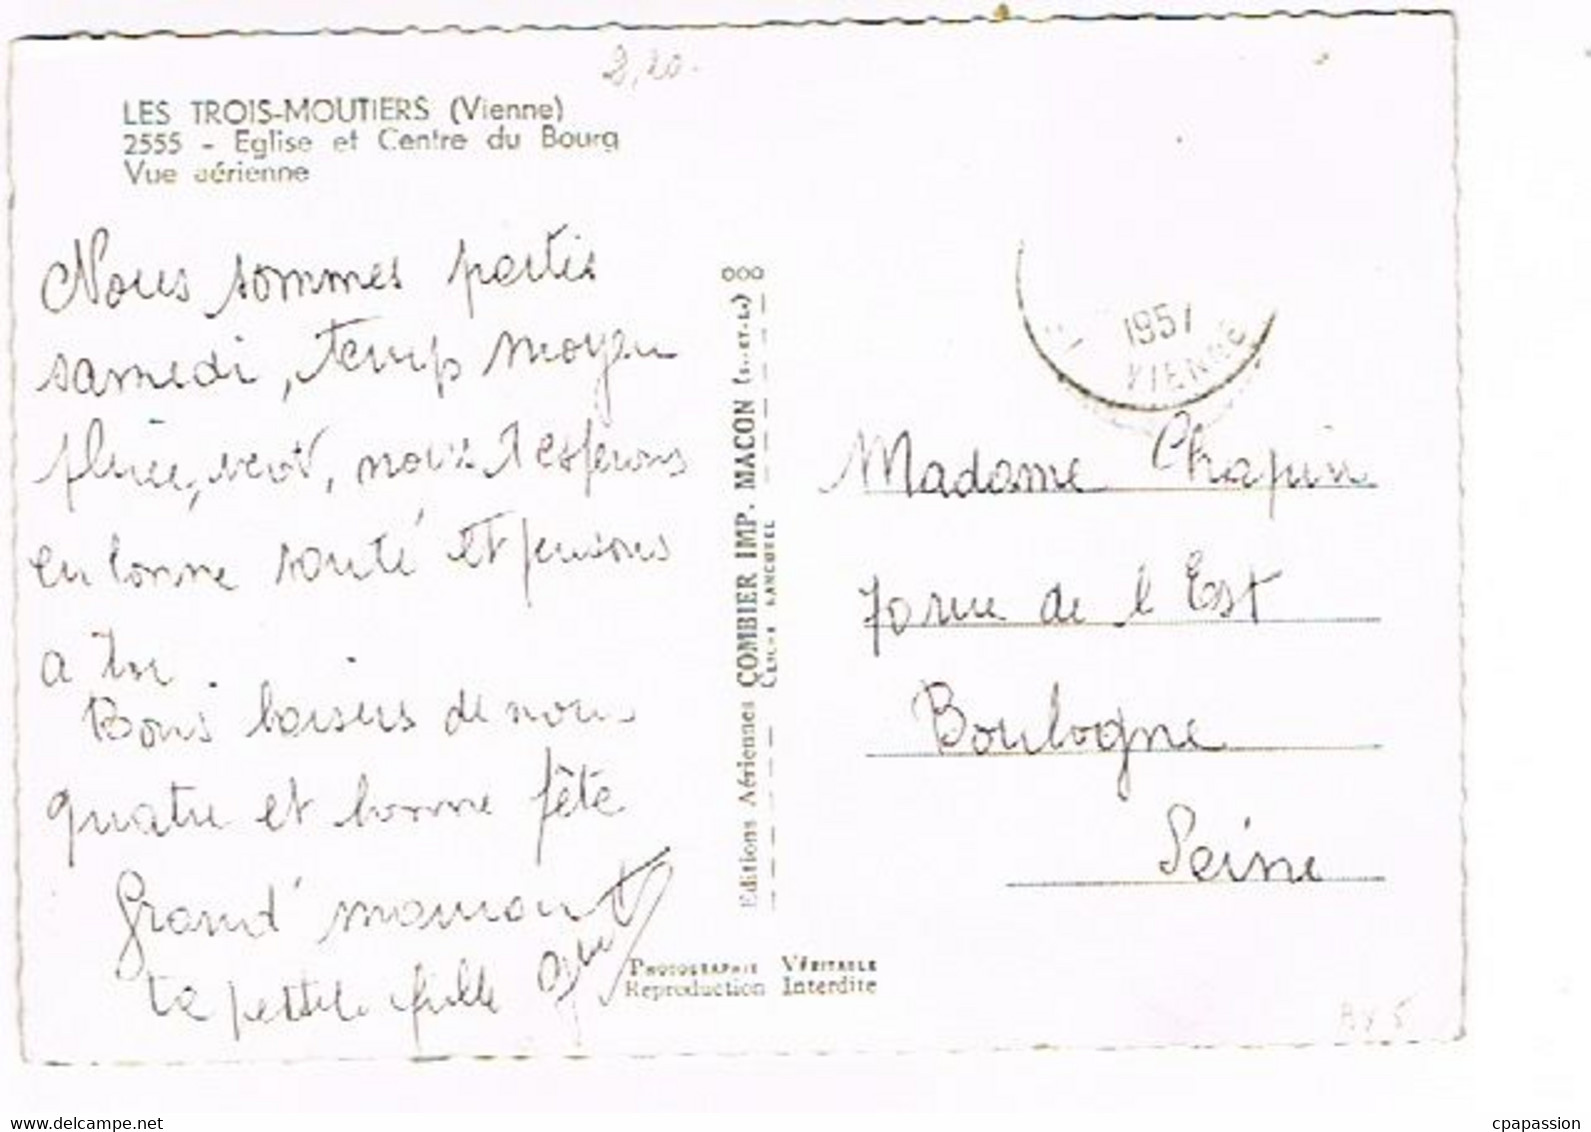 2,20.
LES TROIS-MOUTIERS (Vienne)
2555 - Eglise et Centre du Bourg
Vue aérienne
Nous sommes partis
samedi, temps moyen
pluie, vent, nous t'espérons
en bonne santé et pensons
a toi.
Bons baisers de nous
quatre et bonne fête
Grand' maman
ta petite fille
Editions Aériennes COMBIER IMP. MACON (S.-ET-L.)
PHOTOGRAPHIE VÉRITABLE
Reproduction Interdite
1957
VIENNE
Madame Chapin
70 rue de l Est
Boulogne
Seine
cpapassion